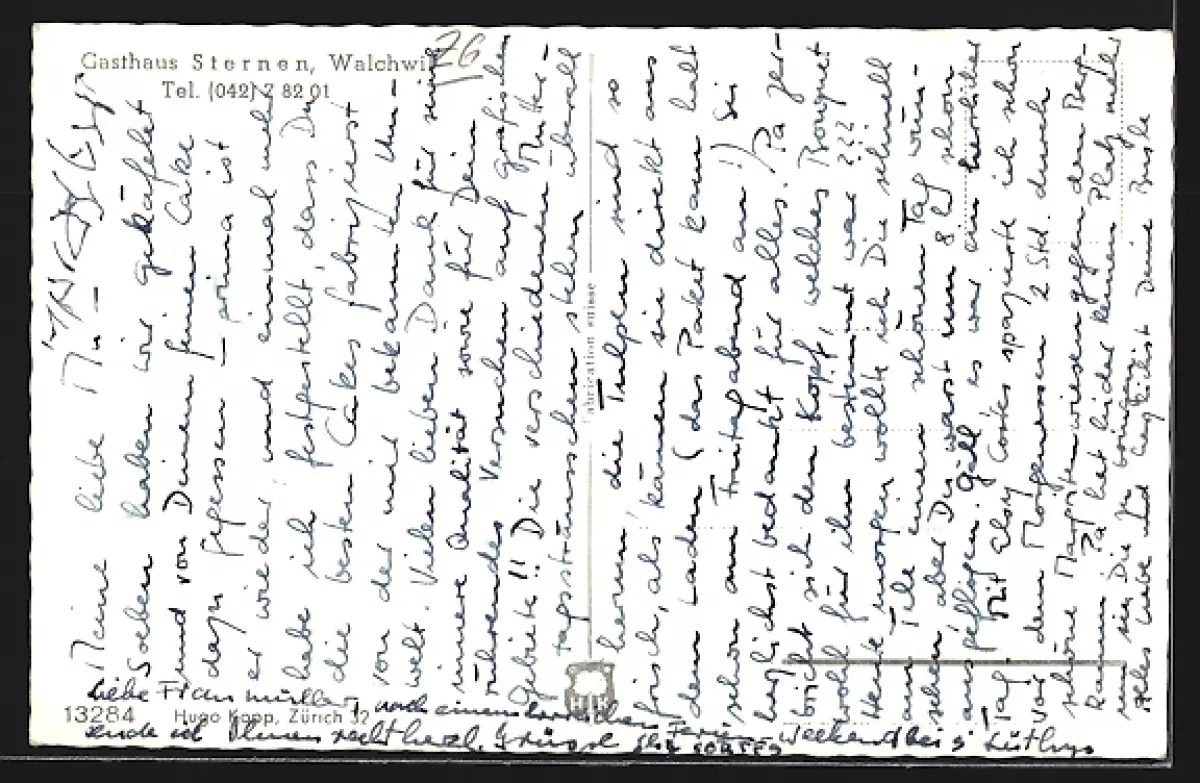 Gasthaus Sternen, Walchwil
Tel. (042) 7 82 01
76
Meine liebe Mu –
Soeben haben wir gekäfelet
und von Deinen feinen Cake
dazu gegessen – prima ist
er wieder und einmal mehr
habe ich festgestellt, dass Du
die besten Cakes fabrizierst
von der mir bekannten Um-
welt. Vielen lieben Dank für seine
innere Qualität sowie für Dein
rührendes Versuchen auf grafischen
Gebiete!! Die verschiedenen Mutter-
tagssträusschen stehen überall
herum, die Tulpen sind so
frisch, als kämen sie direkt aus
dem Laden (das Paket kam halt
schon am Freitagabend an!) Sei
herzlichst bedankt für alles. Pa zer-
bricht sich den Kopf, welches Bouquet
wohl für ihn bestimmt war???
Heute morgen wollte ich Dir schnell
am Tele einen schönen Tag wün-
schen, aber Du warst um 8 h schon
ausgeflogen. gäll es war ein herrlicher
Tag. Mit Elsy Cortes spazierte ich schon
vor dem Morgenessen 2 Std. durch
schöne Margritenwiesen gegen den Berg
Kaum Pa hat leider keinen Platz mehr
um sie Dir zu
Alles Liebe und herzlichst Deine Busle
Liebe Frau Müller, nach einem herrlichen Ferien-Weekend bei's Lüthys
sende ich Ihnen recht herzl. Grüsse
13284 Hugo Kopp, Zürich 32
Fabrication suisse